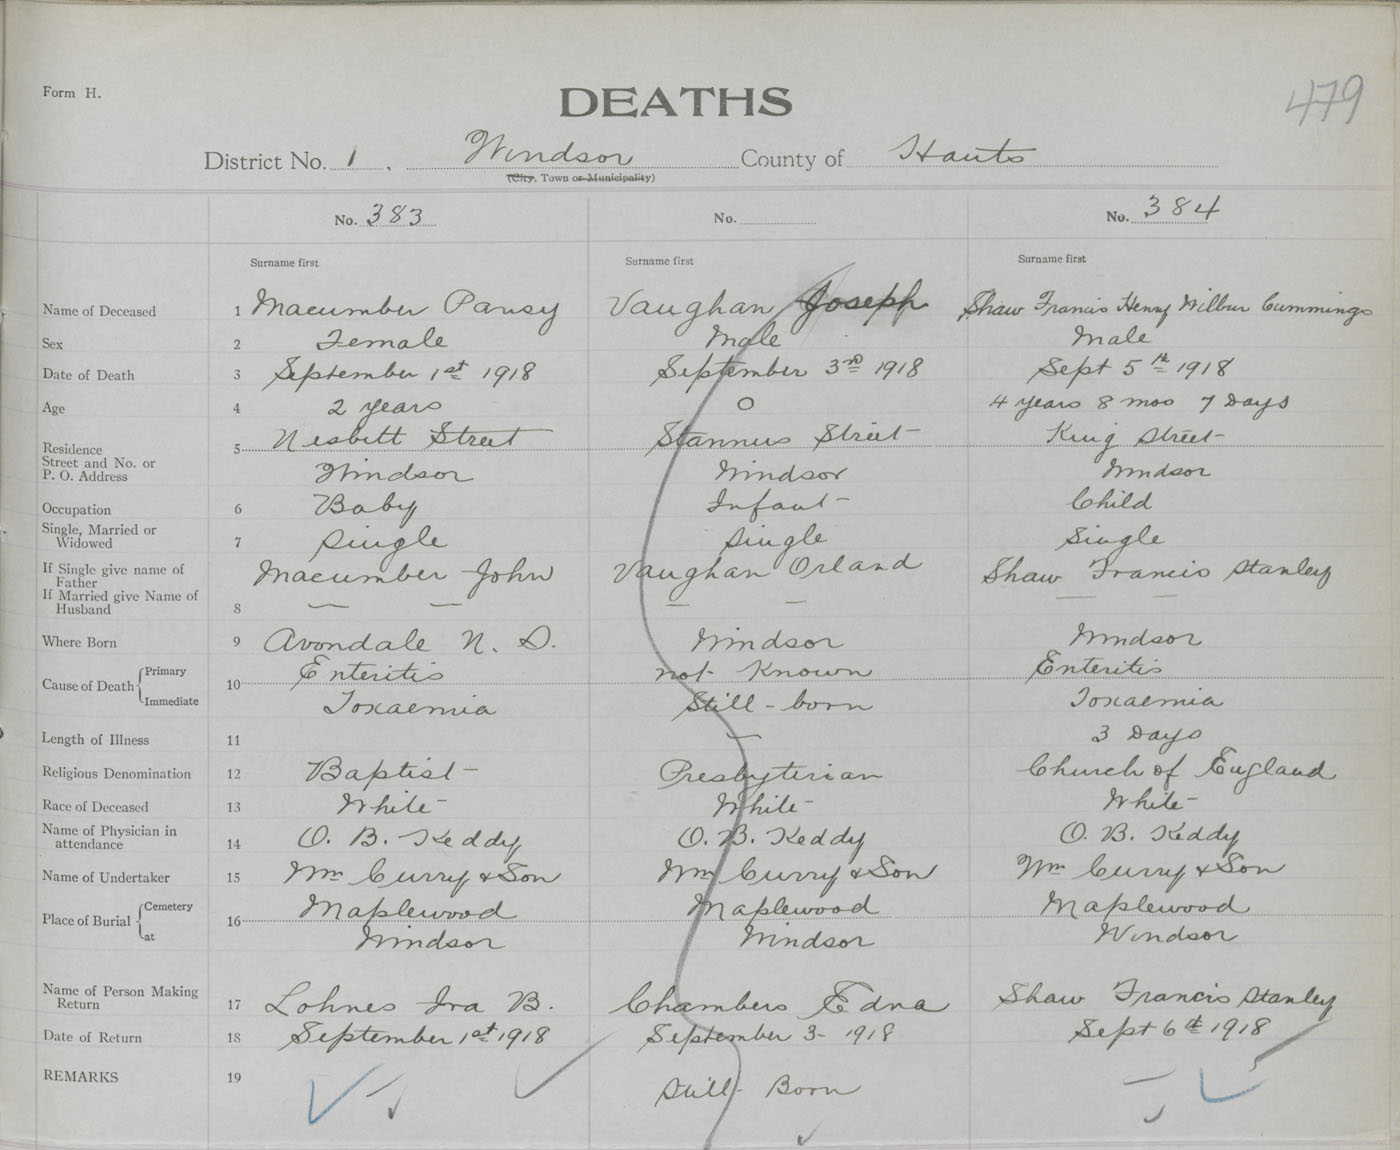 Form H.
DEATHS
479
District No. 1, Windsor County of Hants
(City, Town or Municipality)
No. 383 No. No. 384
Surname first Surname first Surname first
Name of Deceased 1 Macumber Pansy Vaughan Joseph Shaw Francis Henry Wilbur Cummings
Sex 2 Female Male Male
Date of Death 3 September 1st 1918 September 3rd 1918 Sept 5th 1918
Age 4 2 years 0 4 years 8 mos 7 Days
Residence 5 Nesbitt Street Stannus Street King Street
Street and No. or
P. O. Address Windsor Windsor Windsor
Occupation 6 Baby Infant Child
Single, Married or
Widowed 7 Single Single Single
If Single give name of
Father Macumber John Vaughan Orland Shaw Francis Stanley
If Married give Name of
Husband 8 — — — — — —
Where Born 9 Avondale N. S. Windsor Windsor
Cause of Death 10 Primary Enteritis not Known Enteritis
Immediate Toxaemia Still-born Toxaemia
Length of Illness 11 — 3 Days
Religious Denomination 12 Baptist Presbyterian Church of England
Race of Deceased 13 White White White
Name of Physician in
attendance 14 O. B. Keddy O. B. Keddy O. B. Keddy
Name of Undertaker 15 Wm Curry & Son Wm Curry & Son Wm Curry & Son
Place of Burial 16 Cemetery Maplewood Maplewood Maplewood
at Windsor Windsor Windsor
Name of Person Making
Return 17 Lohnes Ira B. Chambers Edna Shaw Francis Stanley
Date of Return 18 September 1st 1918 September 3 - 1918 Sept 6th 1918
REMARKS 19 Still-Born